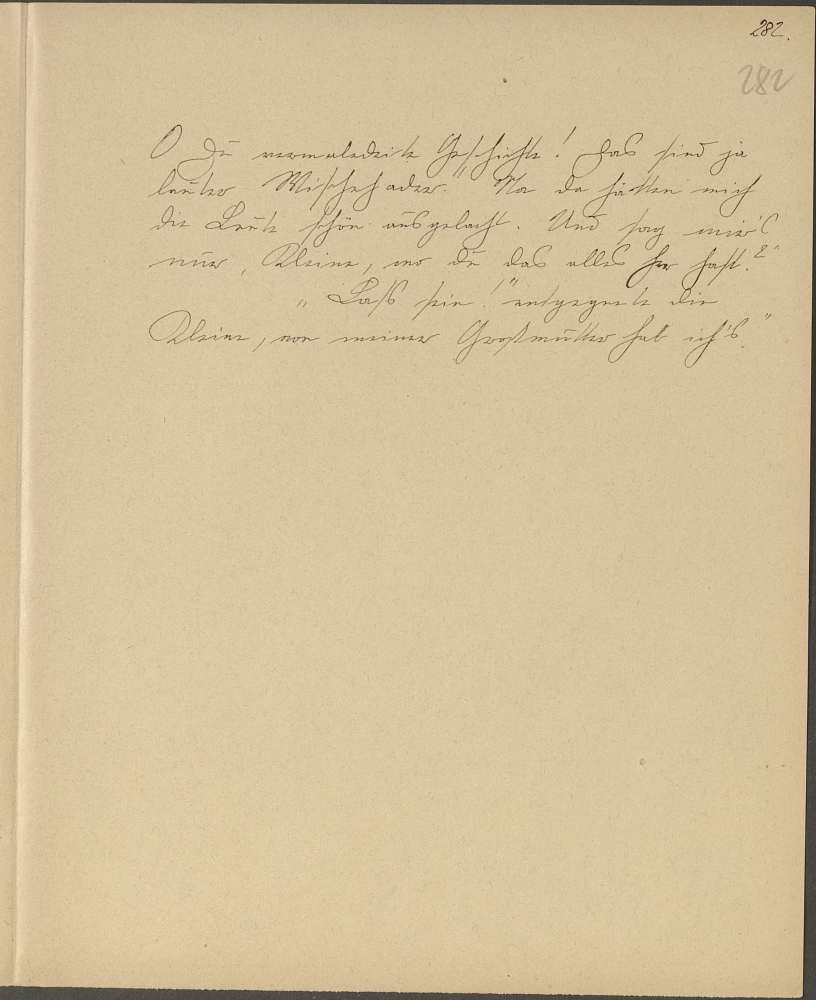 282.
282
O Du vermaledeite Geschichte! Das sind ja
lauter Wischhader." Na da hätten mich
die Leute schön ausgelacht. Und sag mir's
nur, Kleine, wo du das alles her hast?"
"Lass sein!" entgegnete die
Kleine, von meiner Großmutter hab ich's."